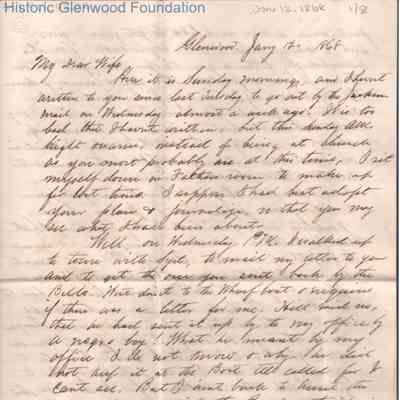 Historic Glenwood Foundation
Jan 12, 1868 1/8
Glenwood Jany 12, 1868
My dear Wife
Here it is Sunday morning, and I havnt
written to you since last Tuesday to go out by the Jackson
mail on Wednesday almost a week ago. It is too
bad that I havnt written, but this Sunday
instead of being at church
as you most probably are at this time, I set
myself down in Fathers room to make up
for lost time. I suppose I had best adopt
your plan & journalize, so that you may
see what I have been about.
Well, on Wednesday I walked up
to town with to mail my letter to you
and to get the one you sent back by the
Bella. Went down to the Wharf boat & enquired
if there was a letter for me. Hall said no,
that he had sent it up by to my office by
a negro boy! What he meant by my
office I do not know & why he did
not keep it at the Boat till called for I
cant see. But I went back to